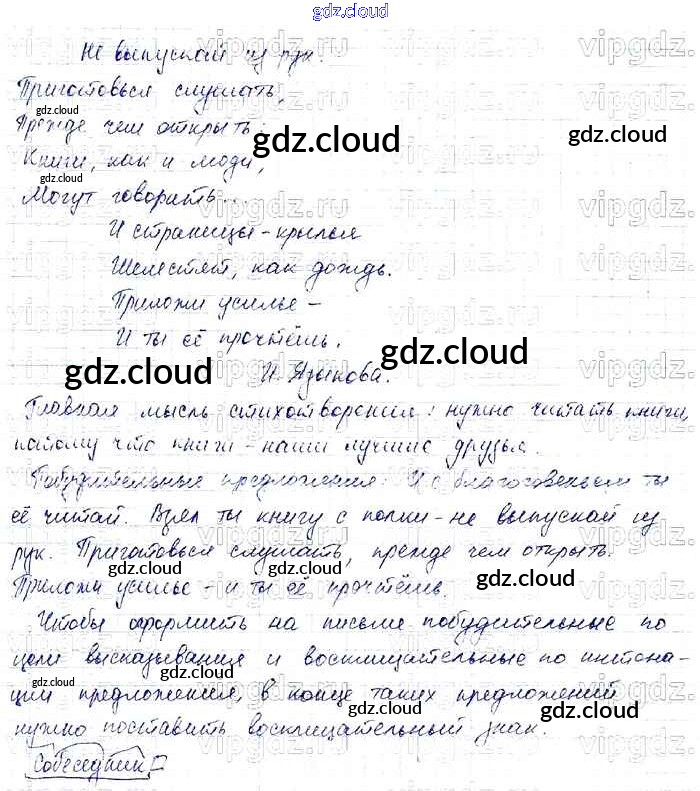 gdz.cloud
Не выпускай из рук.
Приготовься слушать,
Прежде чем открыть:
Книги, как и люди,
Могут говорить...
И страницы-крылья
Шелестят, как дождь.
Приложи усилье –
И ты её прочтёшь.
И. Языкова.
Главная мысль стихотворения: нужно читать книги,
потому что книги – наши лучшие друзья.
Побудительные предложения: И с благоговеньем ты
её читай. Взял ты книгу с полки – не выпускай из
рук. Приготовься слушать, прежде чем открыть.
Приложи усилье – и ты её прочтёшь.
Чтобы оформить на письме побудительные по
цели высказывания и восклицательные по интона-
ции предложения, в конце таких предложений
нужно поставить восклицательный знак.
Собеседник